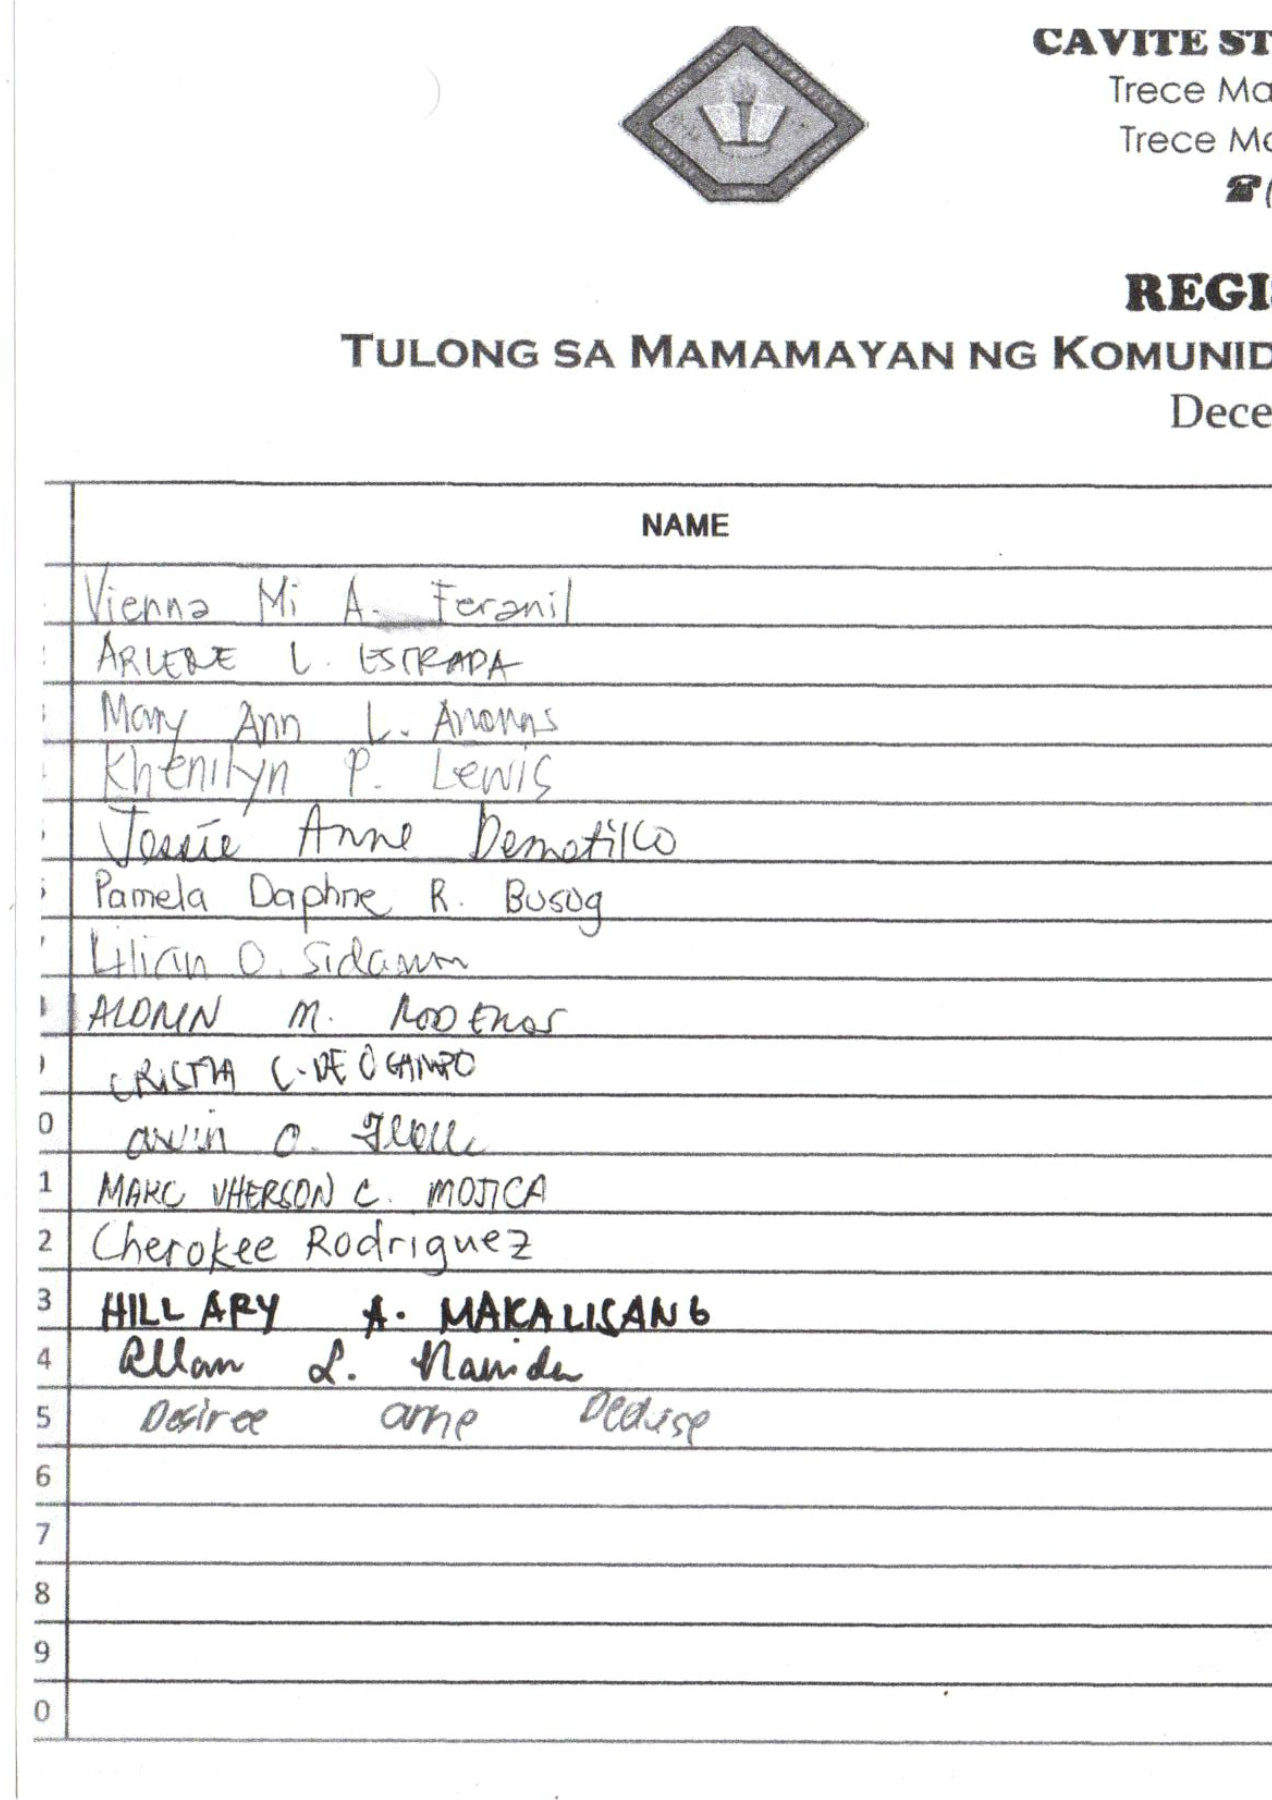 CAVITE STATE UNIVERSITY
CAVITE ST
Trece Ma
Trece Ma
☎(
REGIS
TULONG SA MAMAMAYAN NG KOMUNID
Dece
NAME
Vienna Mi A. Feranil
ARLENE L. ESTRADA
Mary Ann L. Anonas
Khenilyn P. Lewis
Jessie Anne Demotilco
Pamela Daphne R. Busog
Lilian O.
M.
CRISTIA C. DE OCAMPO
0 arvin O.
1 MARC VHERSON C. MOJICA
2 Cherokee Rodriguez
3 HILLARY A. MAKALISANG
4 Allan L.
5 Desiree anne
6
7
8
9
0